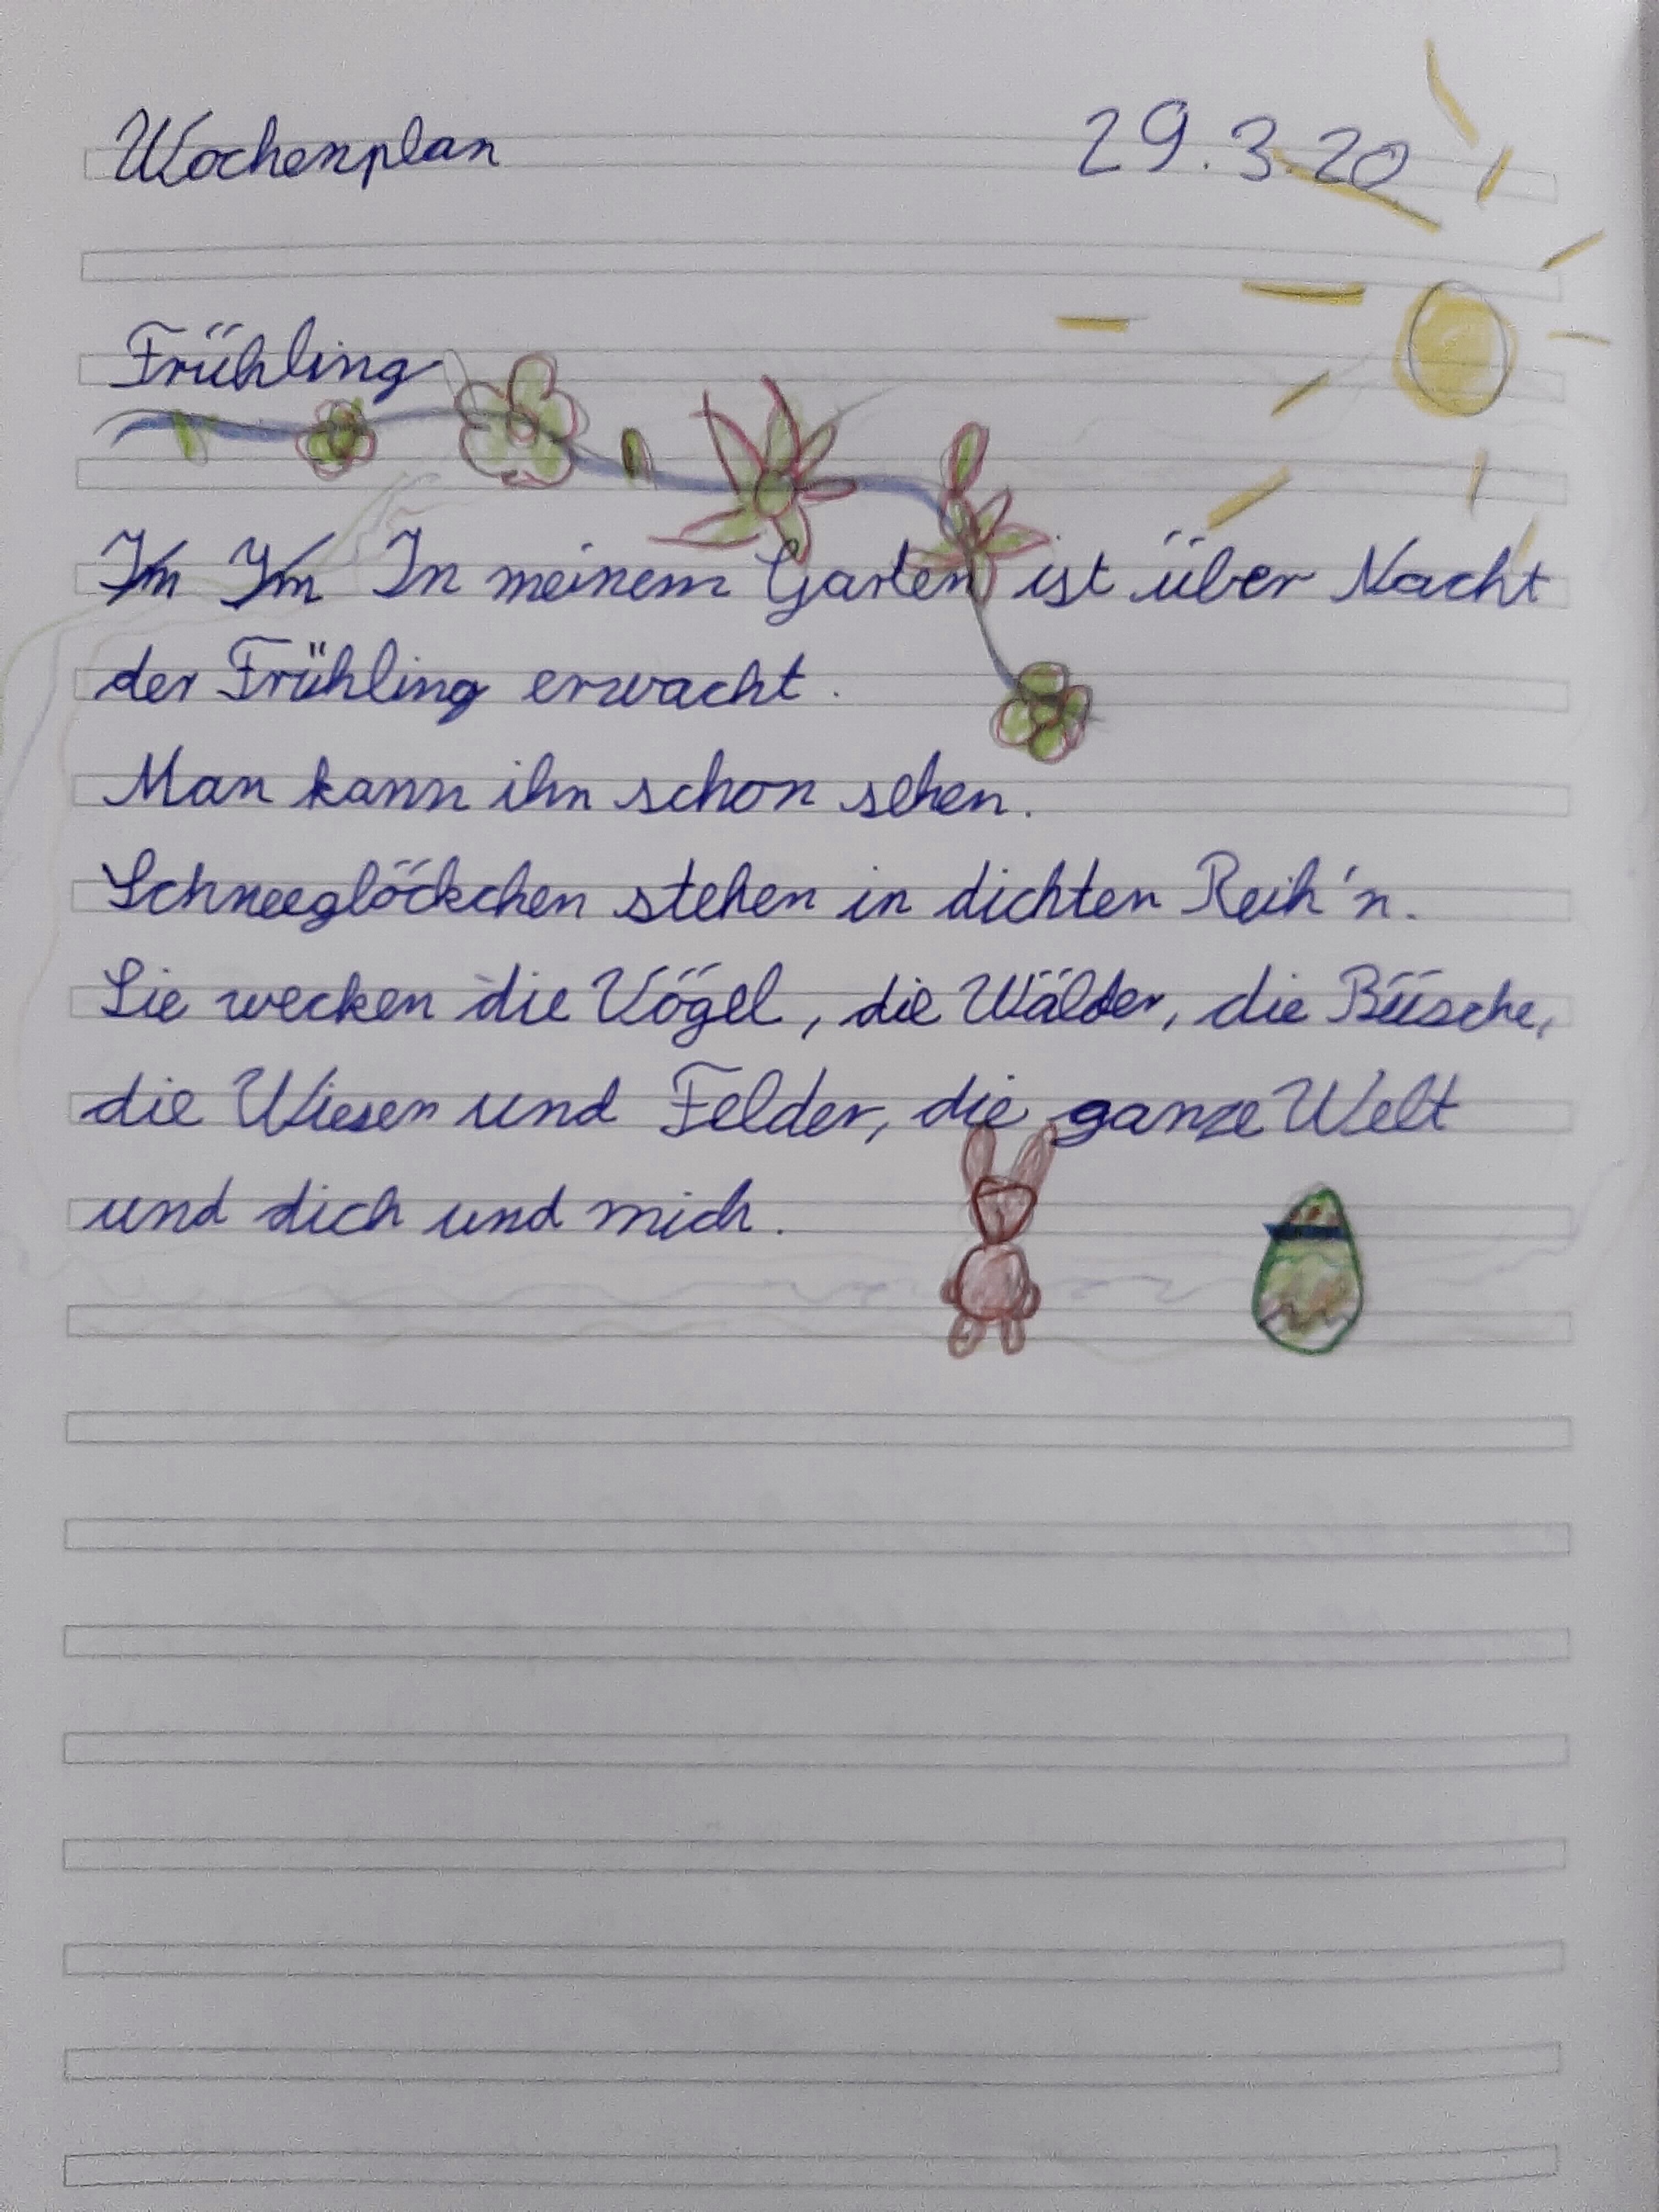 Wochenplan 29.3.20
Frühling
Im Im In meinem Garten ist über Nacht
der Frühling erwacht.
Man kann ihn schon sehen.
Schneeglöckchen stehen in dichten Reih'n.
Sie wecken die Vögel, die Wälder, die Büsche,
die Wiesen und Felder, die ganze Welt
und dich und mich.